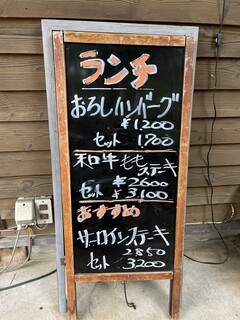 ランチ
おろしハンバーグ
¥1,200
セット 1,700
和牛もも
ステーキ
¥2600
セット ¥3,100
おすすめ
サーロインステーキ
2850
セット 3200